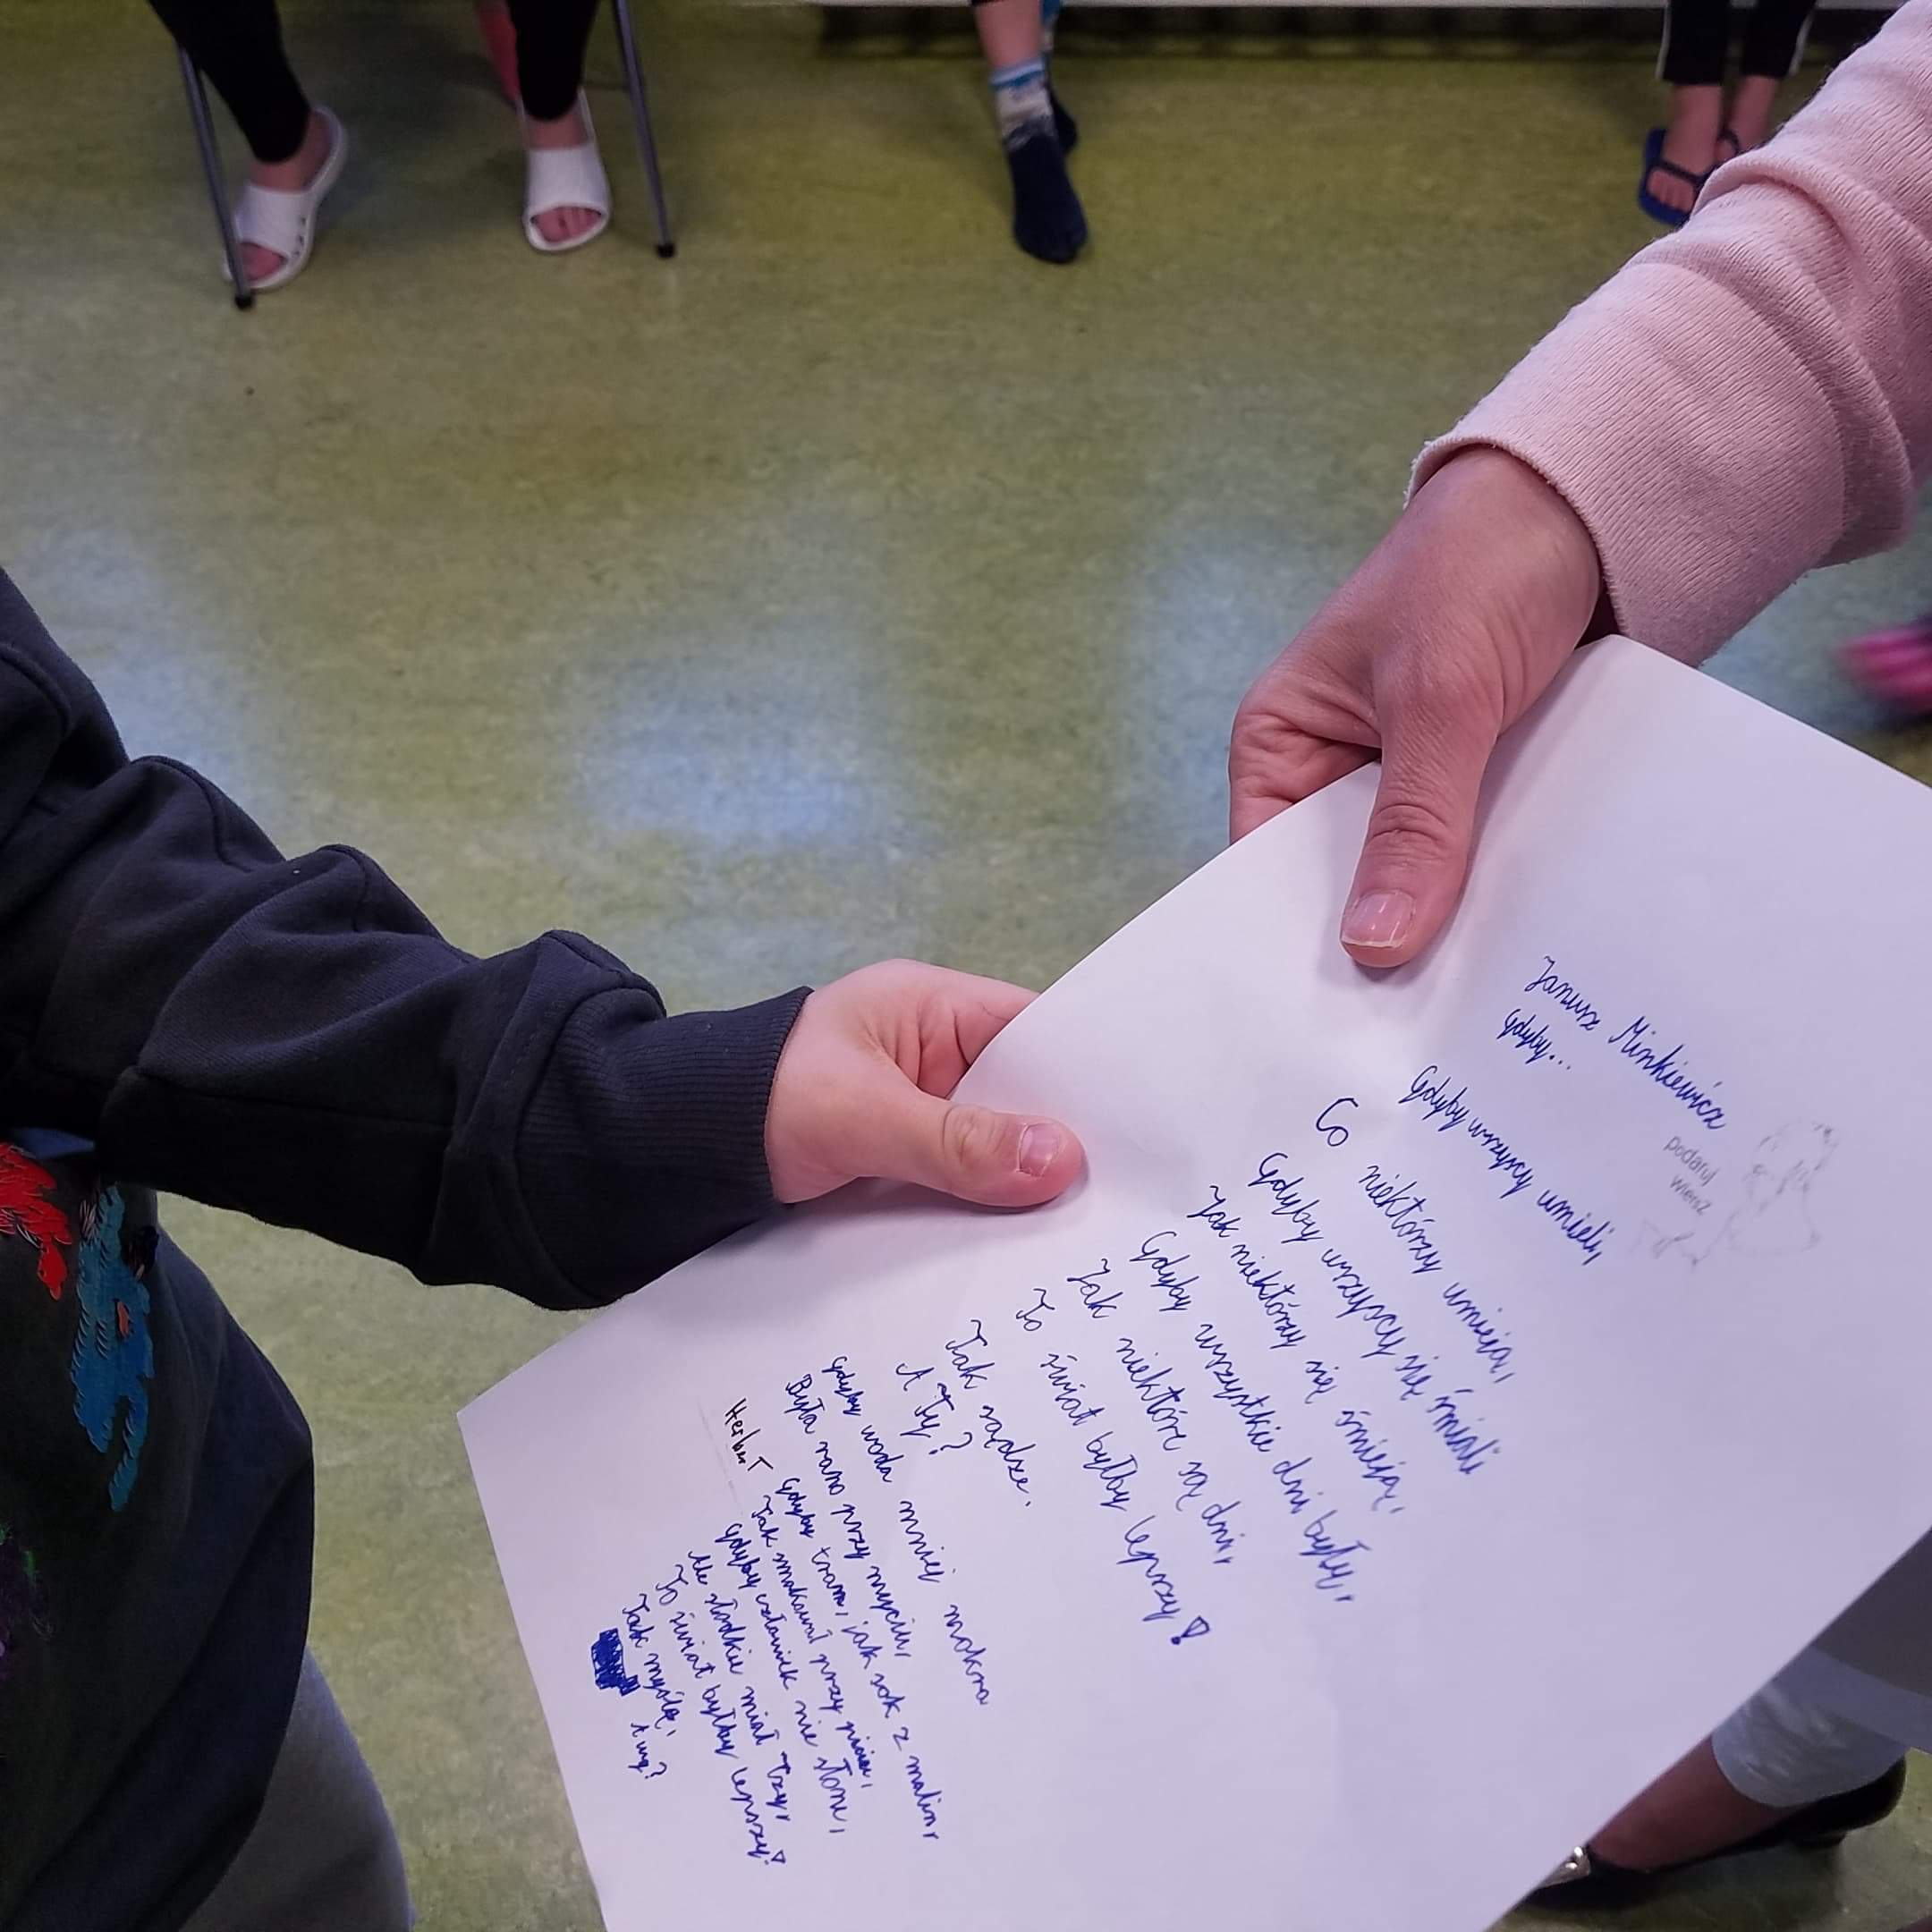 Janusz Minkiewicz
Gdyby...
podaruj
wiersz
Gdyby wszyscy umieli,
Co niektórzy umieją,
Gdyby wszyscy się śmiali
Jak niektórzy się śmieją,
Gdyby wszystkie dni były,
Jak niektóre są dni,
To świat byłby lepszy!
Tak sądzę.
A Ty?
Gdyby woda mniej mokra
Była nam przy myciu,
Gdyby tran, jak sok z malin,
Tak smakował przy piciu,
Gdyby człowiek nie słone,
Ale słodkie miał łzy,
To świat byłby lepszy!
Tak myślę,
A wy?
Herbert